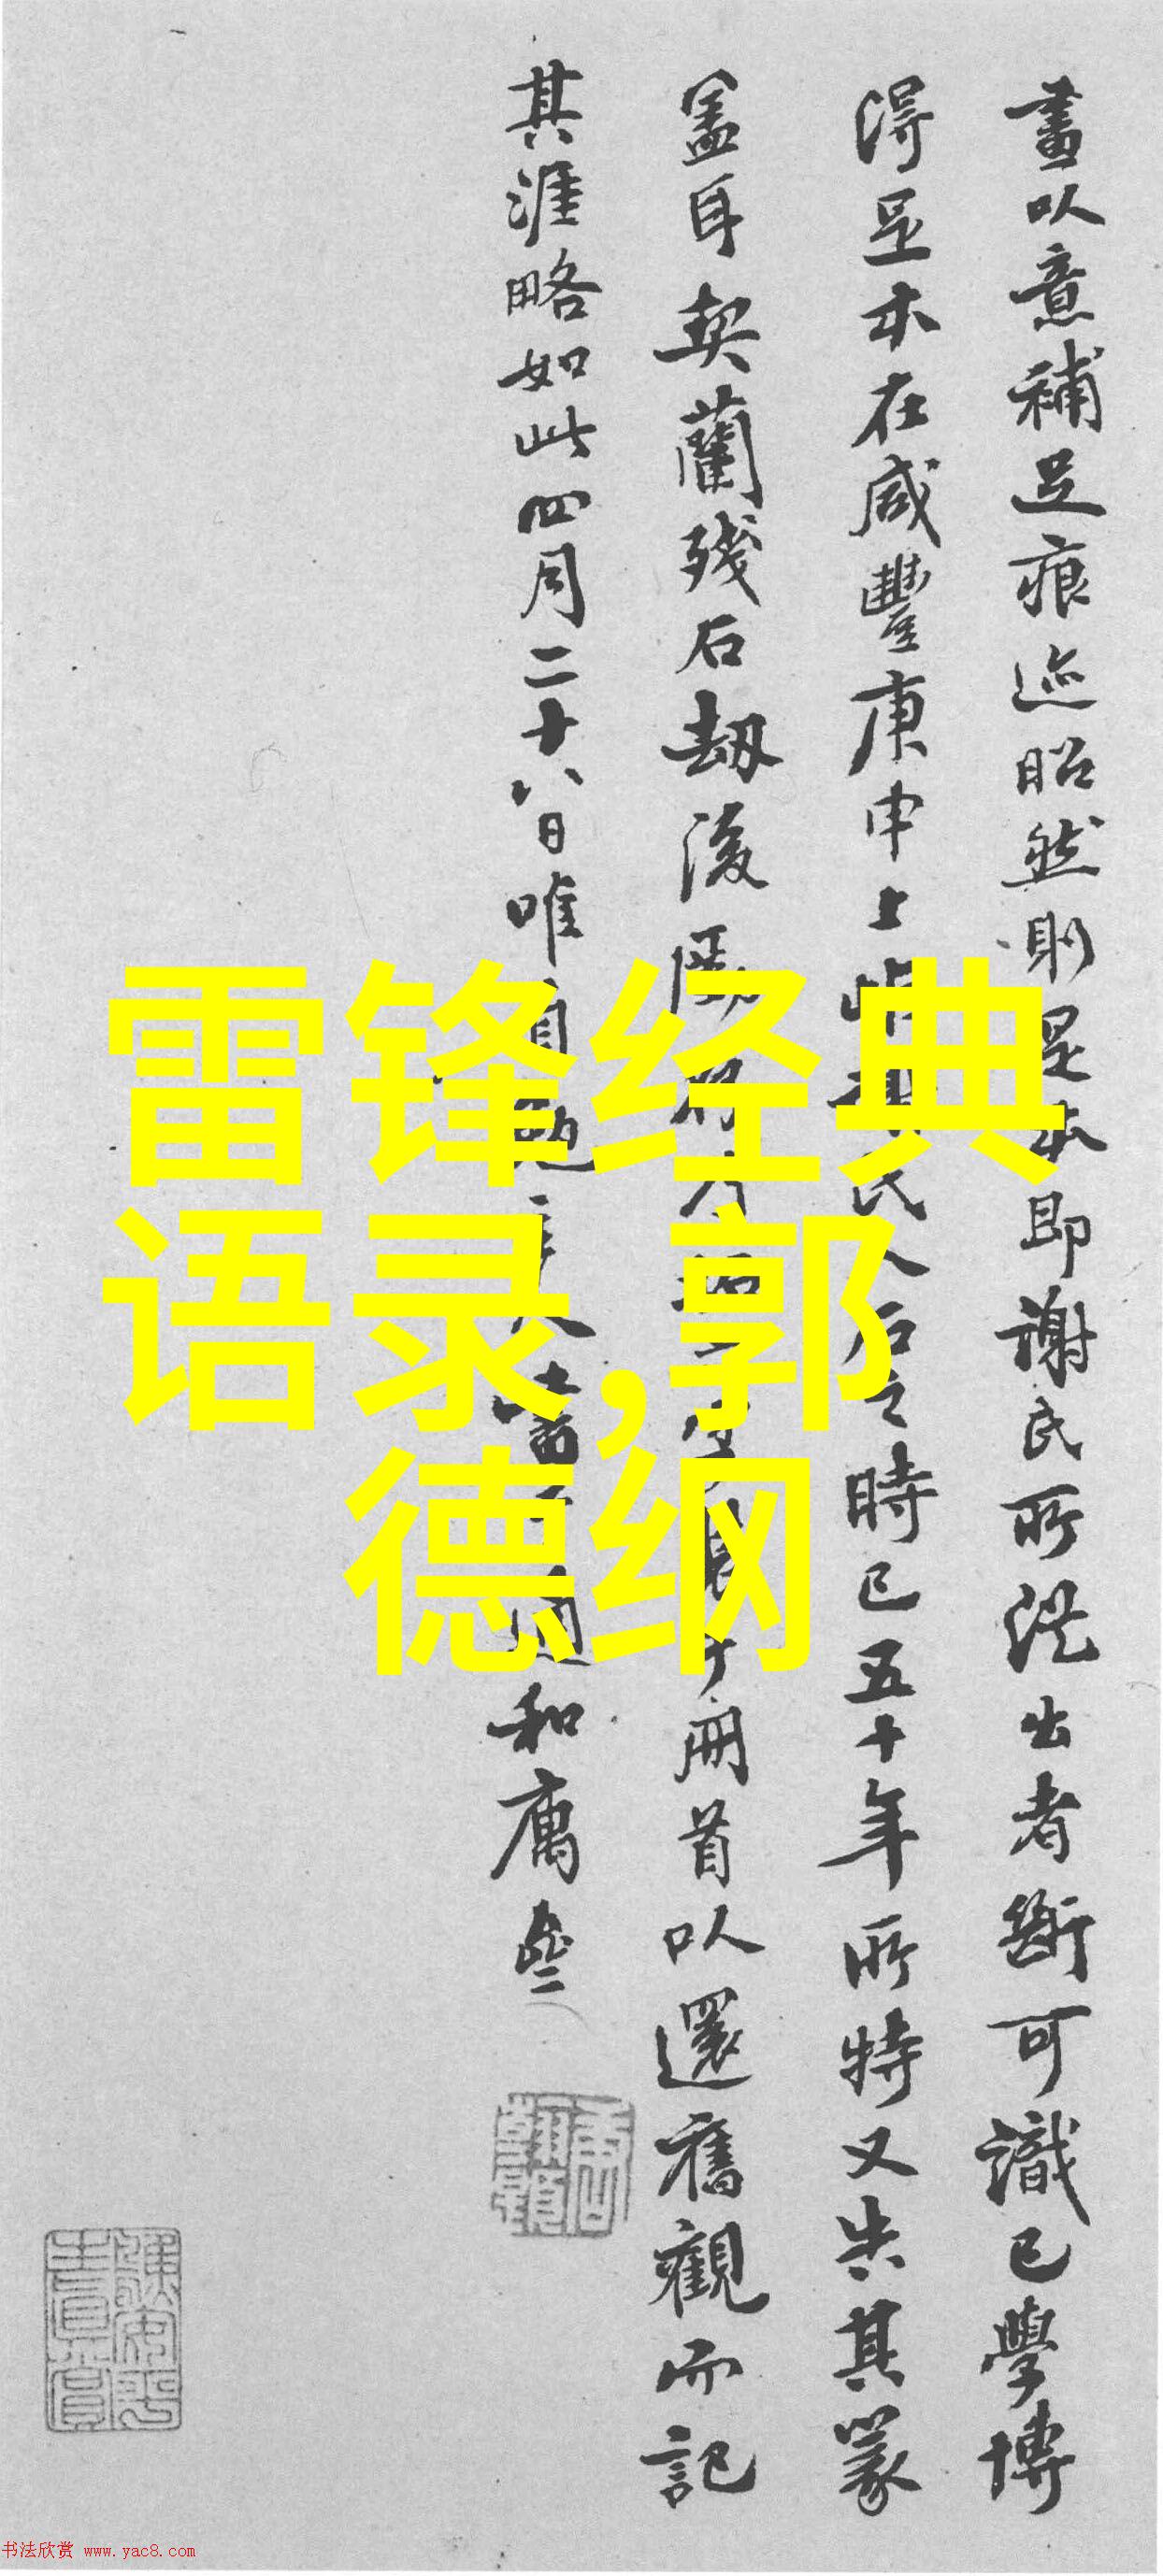 畫以意補足痕迹昭然則是本即謝氏所從出者斷可識已學博
得是本在咸豐庚申上 氏入石之時已五十年所特又失其篆
蓋耳契蘭殘石劫後 冊首以還舊觀而記
其涯略如此四月二十八日唯 和庽
雷锋经典
语录,郭
德纲
书法欣赏 www.yac8.com